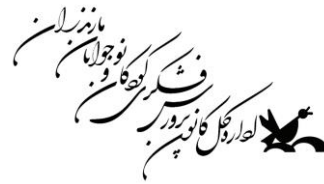 اداره کل کانون پرورش فکری کودکان و نوجوانان مازندران